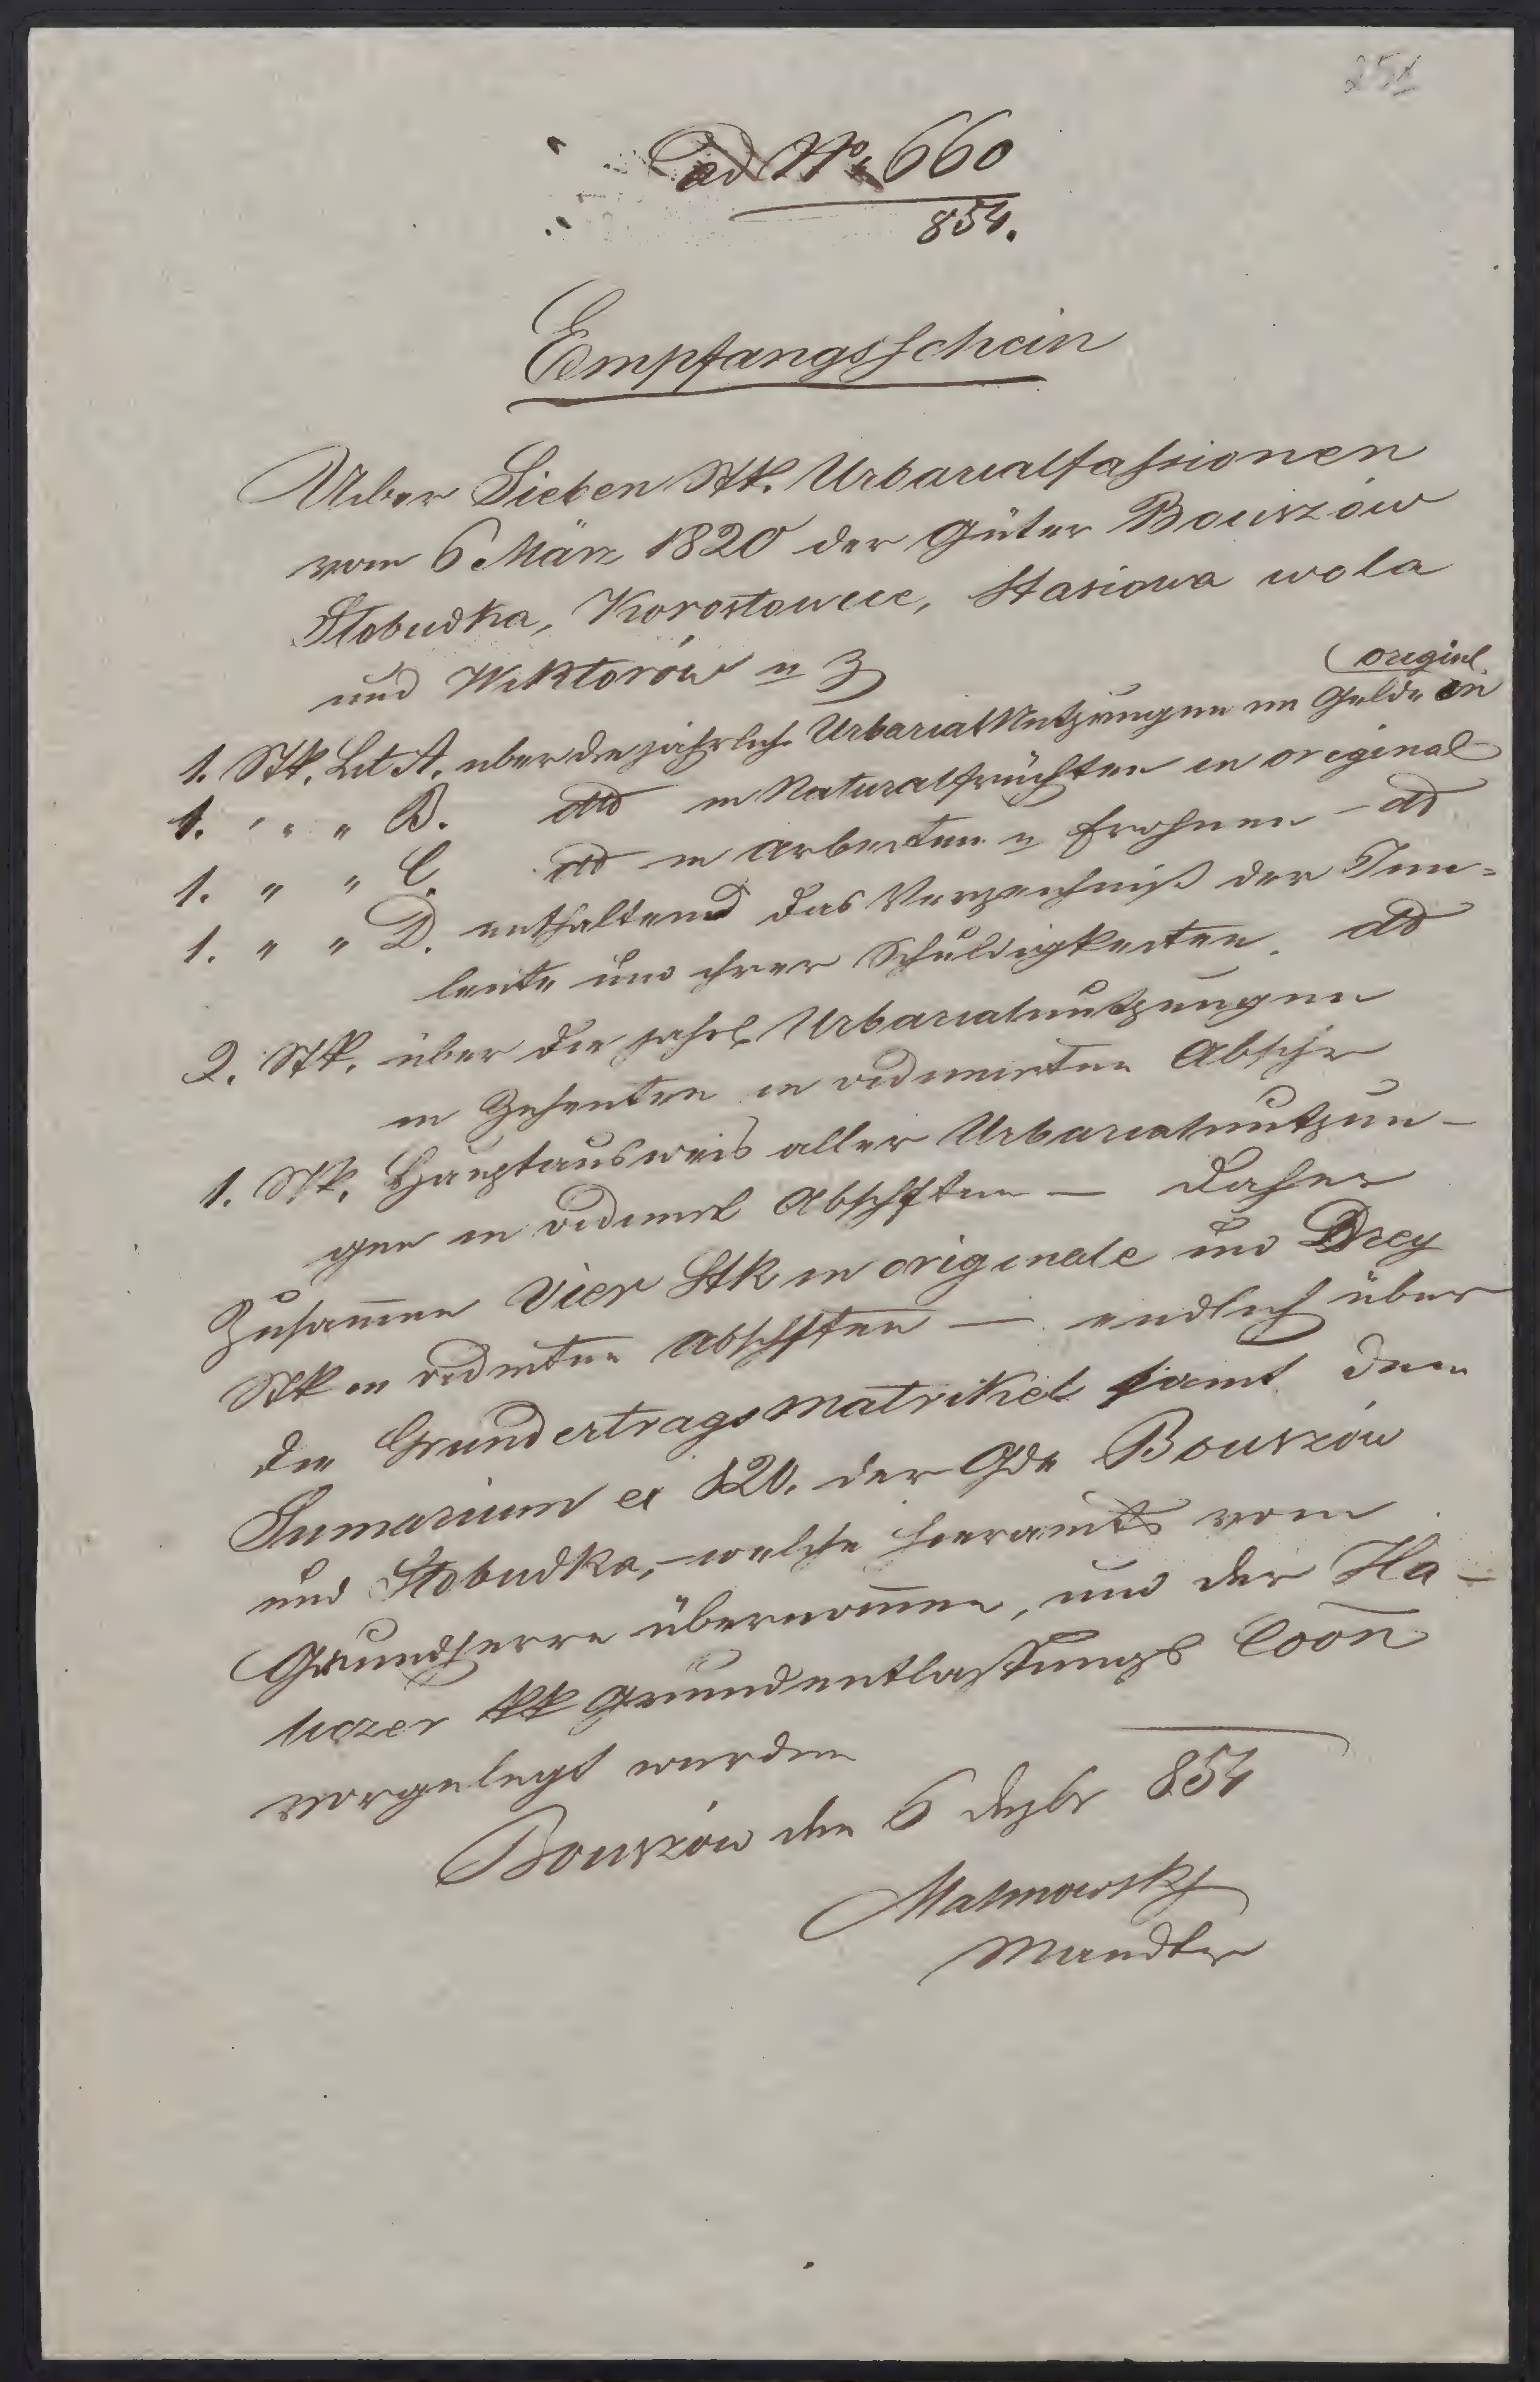 251
ad No 660
854.
Empfangsschein
Ueber Sieben Stk. Urbarialfassionen
vom 6 März 1820 der Güter Bouszów
Słobudka, Korostowice, Stasiowa wola
und Wiktorów u z
originl
1. Stk. Lit A. uber die jährlich Urbarial Nutzungen im Gelde in
1. " " " B. dtto in Naturalfrüchten in original
1. " " C. dtto in Arbeiten u Frohnen – dto
1. " " D. enthaltend das Verzeichniß der Inn=
leute und ihrer Schuldigkeiten. dto
2. Stk. über die jahrl Urbarialnutzungen
in Zehenten in vidimirten Abschr
1. Stk. Hauptausweis aller Urbarialnutzun–
gen in vidimrt Abschften — daher
Zusammen Vier Stk in originale und Drey
Stk in vidmten Abschften — endlich über
die Grundertragsmatrikel samt dem
Sumarium ex 820. der Gde Bouszów
und Słobudka, – welche hieramts vom
Grundherrn übernommen, und der Ha–
liczer kk Grundentlastungs Coon
vorgelegt wurden
Bouszów den 6 Dezbr 854
Malinowsky
Mandtr